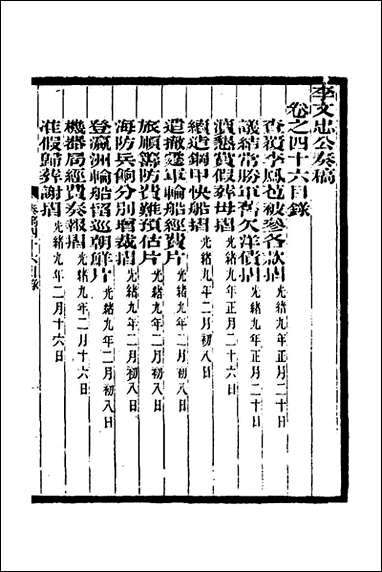 李文忠公奏稿
卷之四十六目錄
查覆李鳳苞被參各款摺 光緒九年正月二十日
議結常勝軍舊欠洋債摺 光緒九年正月二十日
瀆懇賞假葬母摺 光緒九年二月十六日
續造鋼甲快船摺 光緒九年二月初八日
道撤運軍輪船經費片 光緒九年二月初八日
旅順籌防費難預估片 光緒九年二月初八日
海防兵餉分別增裁摺 光緒九年二月初八日
登瀛洲輪船留巡朝鮮片 光緒九年二月初八日
機器局經費奏報摺 光緒九年二月十六日
准假歸葬謝摺 光緒九年二月十六日
奏稿四十六目錄